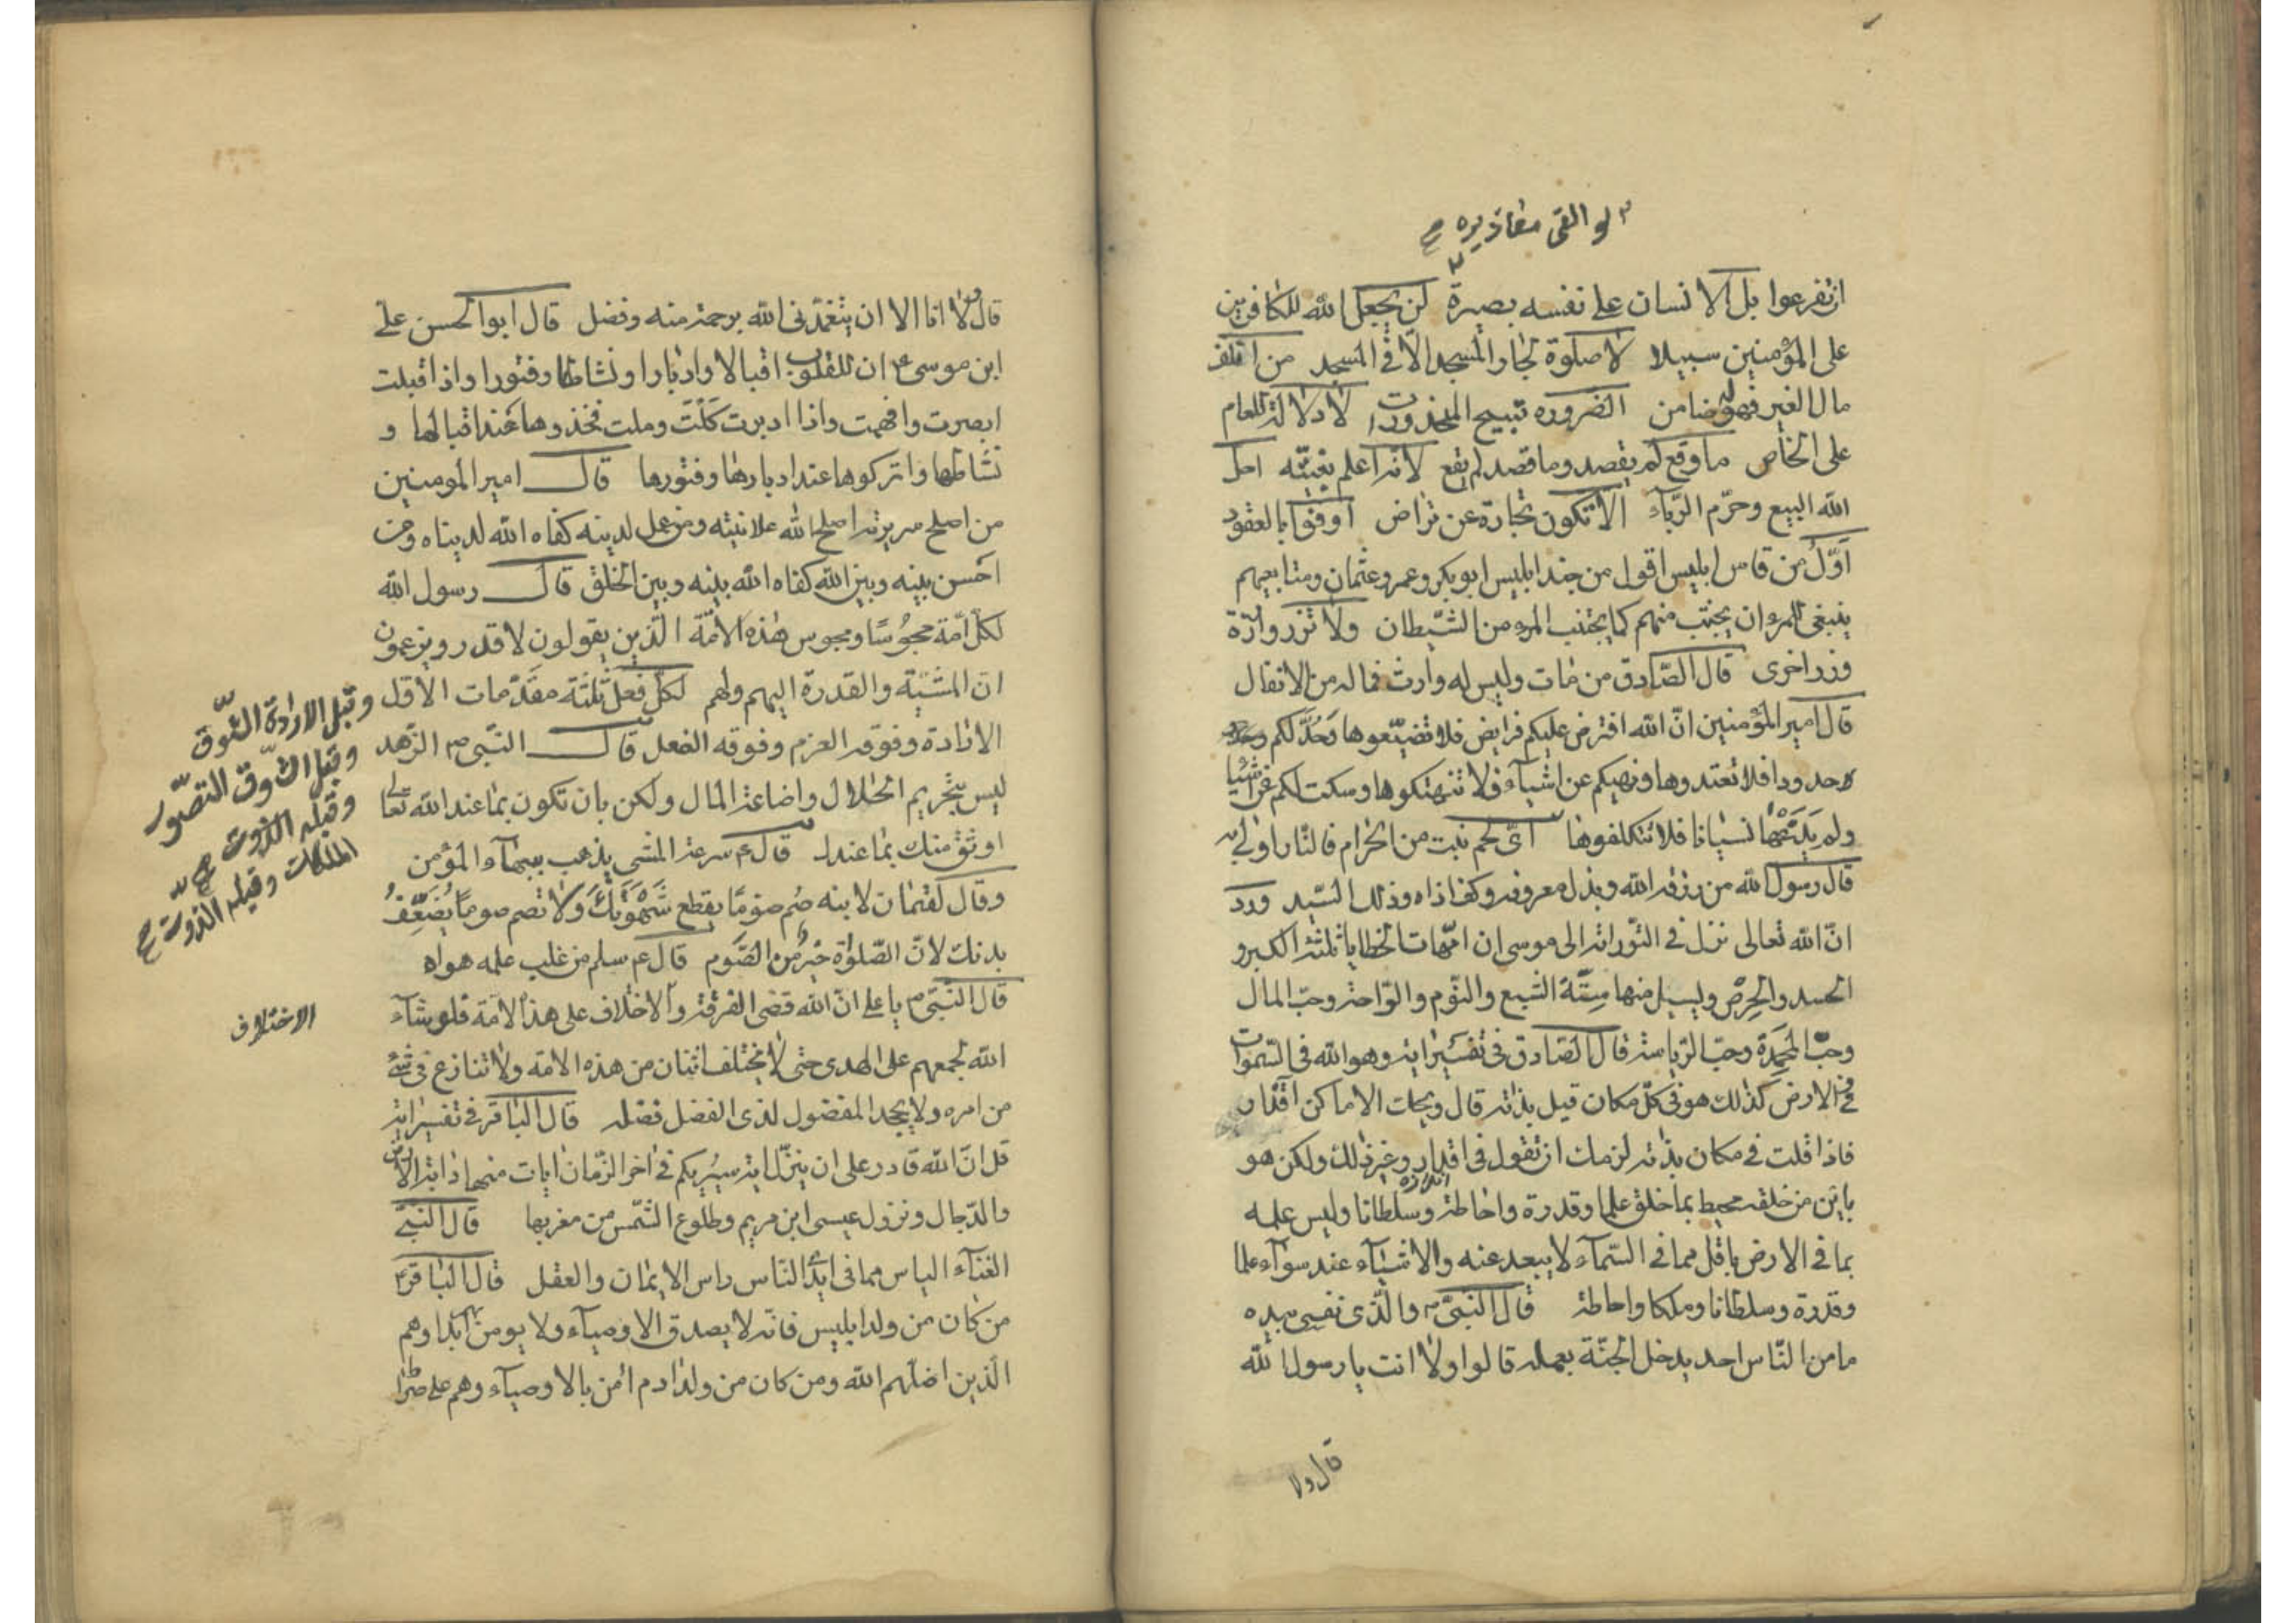 لو القى معاذيره
ان تفرعوا بل الانسان على نفسه بصيرة لن يجعل الله للكافرين
على المؤمنين سبيلا لا صلوة لجار المسجد الا فى المسجد من اتلف
مال الغير فهو له ضامن الضروره تبيح المحذورات لا دلالة للعام
على الخاص ما وقع لم يقصد وما قصد لم يقع لانه اعلم بغيبه احل
الله البيع وحرّم الرباء الا تكون تجارة عن تراض اوفوا بالعقود
اوّل من قاس ابليس اقول من جند ابليس ابو بكر وعمر وعثمان ومتابعيهم
ينبغى للمرء ان يجتنب منهم كما يجتنب المرء من الشيطان ولا تزر وازرة
وزر اخرى قال الصادق من مات وليس له وارث فماله من الانفال
قال امير المؤمنين انّ الله افترض عليكم فرايض فلا تضيّعوها وحدّ لكم
حدودا فلا تعتدوها ونهيكم عن اشياء فلا تنهتكوها وسكت لكم عن اشيا
ولم يدعها نسيانا فلا تتكلفوها اىّ لحم نبت من الحرام فالنار اولى به
قال رسول الله من رزقه الله وبذل معروفه وكف اذاه فذلك السيد ورد
انّ الله تعالى نزل فى التوراة الى موسى ان امّهات الخطايا ثلثة الكبر و
الحسد والحرص وليسيل منها ستّة الشبع والنوم والراحة وحب المال
وحبّ المحمدة وحب الرياسة قال الصادق فى تفسير اية وهو الله فى السموات
وفى الارض كذلك هو فى كلّ مكان قيل بذاته قال ويحك الاماكن اقدار
فاذا قلت فى مكان بذاته لزمك ان تقول فى اقدار وغير ذلك ولكن هو
باين من خلقه محيط بما خلق علما وقدرة واحاطة وسلطانا وليس علمه
بما فى الارض باقل مما فى السماء لا يبعد عنه والاشياء عنده سواء علما
وقدرة وسلطانا وملكا واحاطة قال النبىّ والّذى نفسى بيده
ما من الناس احد يدخل الجنّة بعمله قالوا ولا انت يا رسول الله
قال ولا
قال ولا انا الا ان يتغمّدنى الله برحمة منه وفضل قال ابو الحسن على
ابن موسى ع ان للقلوب اقبالا وادبارا ونشاطا وفتورا واذا اقبلت
ابصرت وافهمت واذا ادبرت كلّت وملت فخذوها عند اقبالها و
نشاطها واتركوها عند ادبارها وفتورها قال امير المومنين
من اصلح سريرته اصلح الله علانيته ومن عمل لدينه كفاه الله لديناه ومن
احسن بينه وبين الله كفاه الله بينه وبين الخلق قال رسول الله
لكلّ امّة مجوسًا ومجوس هذه الامّة الّذين يقولون لا قدر ويزعمون
انّ المشيّة والقدرة اليهم ولهم لكل فعل ثلثة مقدّمات الاول
الارادة وفوقه العزم وفوقه الفعل قال النبى ص الزهد
ليس بتحريم الحلال واضاعة المال ولكن بان تكون بما عند الله تعالى
اوثق منك بما عندك قال ع سرعة المشى يذهب ببهاء المؤمن
وقال لقمان لابنه صُم صومًا يقطع شهوتك ولا تصم صومًا يضعّفُ
بدنك لانّ الصلوة خير من الصوم قال ع سلم من غلب علمه هواه
قال النبىّ يا على انّ الله قضى الفرقة والاختلاف على هذا الامة فلو شاء
الله لجمعهم على الهدى حتى لا يختلف اثنان من هذه الامة ولا تنازع فى شئ
من امره ولا يجحد المفضول لذى الفضل فضله قال الباقر فى تفسير اية
قل انّ الله قادر على ان ينزّل اية سيريكم فى اخر الزمان ايات منها دابة الارض
والدّجال ونزول عيسى ابن مريم وطلوع الشمس من مغربها قال النبىّ
الغناء الياس مما فى ايدى الناس راس الايمان والعقل قال الباقر ع
من كان من ولد ابليس فانه لا يصدق الاوصياء ولا يومن بهم ابدا وهم
الّذين اضلّهم الله ومن كان من ولد ادم امن بالاوصياء وهم على صراط
وقبل الارادة الشّوق
وقبل الشّوق التصوّر
الاختلاف